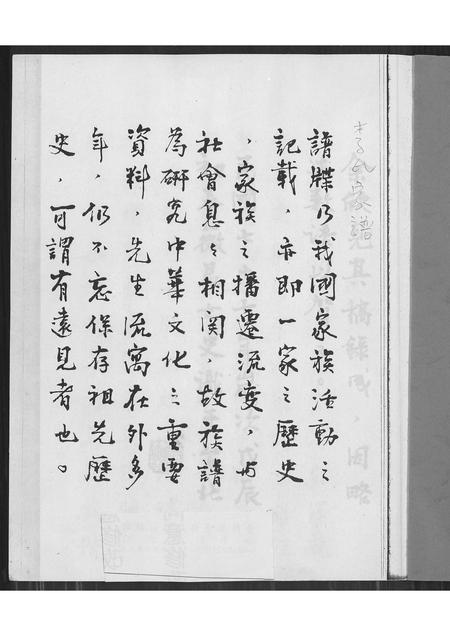 李氏家譜
譜牒乃我國家族活動之
記載，亦即一家之歷史
，家族之播遷流變，與
社會息々相関，故族譜
為研究中華文化之重要
資料，先生流寓在外多
年，仍不忘保存祖先歷
史，可謂有遠見者也。